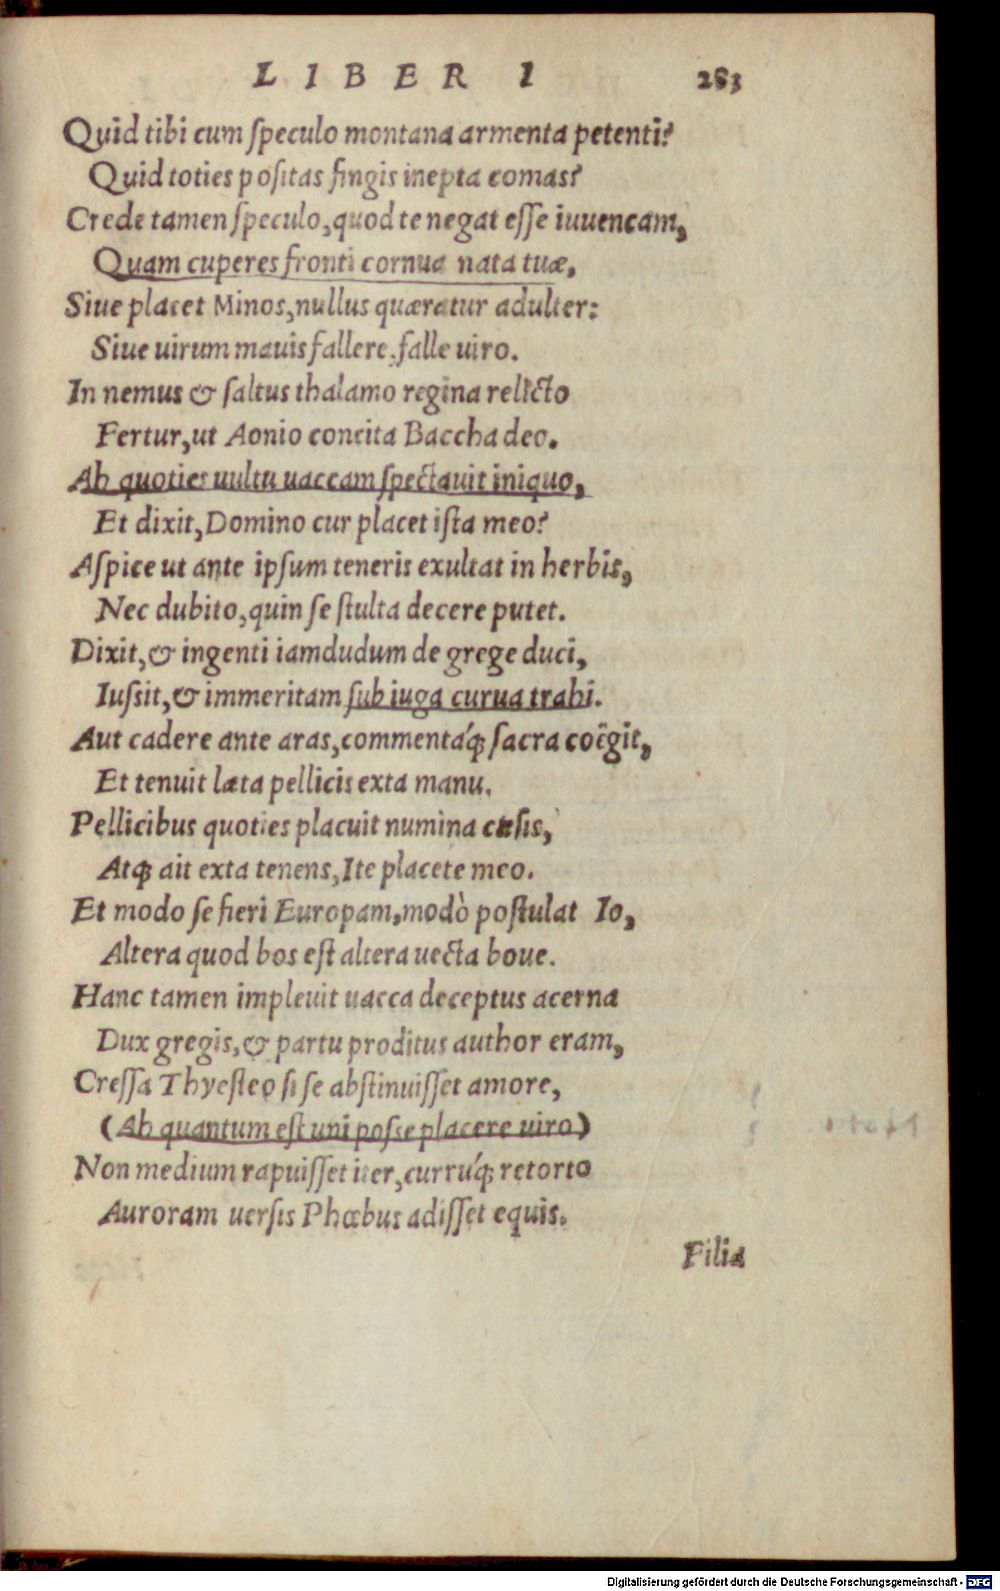 LIBER I 283
Quid tibi cum ſpeculo montana armenta petenti?
Quid toties poſitas fingis inepta comas?
Crede tamen ſpeculo, quod te negat eſſe iuuencam,
Quam cuperes fronti cornua nata tuæ,
Siue placet Minos, nullus quæratur adulter:
Siue uirum mauis fallere, falle uiro.
In nemus & ſaltus thalamo regina relicto
Fertur, ut Aonio concita Baccha deo.
Ah quoties uultu uaccam ſpectauit iniquo,
Et dixit, Domino cur placet iſta meo?
Aſpice ut ante ipſum teneris exultat in herbis,
Nec dubito, quin ſe ſtulta decere putet.
Dixit, & ingenti iamdudum de grege duci,
Iuſsit, & immeritam ſub iuga curua trahi.
Aut cadere ante aras, commentáq; ſacra coëgit,
Et tenuit læta pellicis exta manu.
Pellicibus quoties placuit numina cæſis,
Atq; ait exta tenens, Ite placete meo.
Et modo ſe fieri Europam, modò poſtulat Io,
Altera quod bos eſt altera uecta boue.
Hanc tamen impleuit uacca deceptus acerna
Dux gregis, & partu proditus author eram,
Creſſa Thyeſteo ſi ſe abſtinuiſſet amore,
(Ah quantum eſt uni poſſe placere uiro)
Non medium rapuiſſet iter, currúq; retorto
Auroram uerſis Phœbus adiſſet equis.
Filia
Digitalisierung gefördert durch die Deutsche Forschungsgemeinschaft - DFG